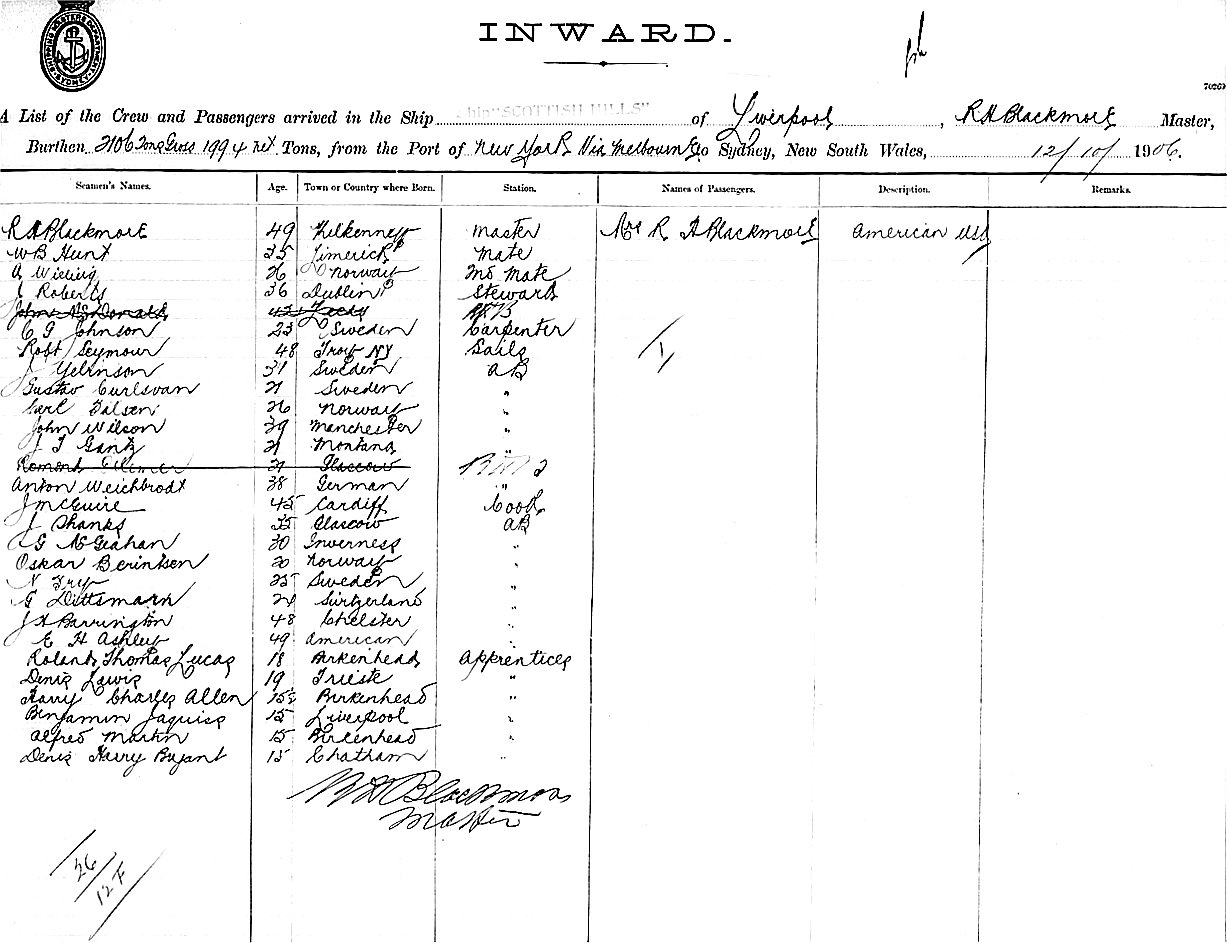 INWARD.
SHIPPING MASTERS DEPARTMENT SYDNEY
A List of the Crew and Passengers arrived in the Ship Ship "SCOTTISH HILLS" of Liverpool, R H Blackmore Master,
Burthen 2106 Tons Gross 1994 net Tons, from the Port of New York Via Melbourne to Sydney, New South Wales, 12/10/1906.
Seamen's Names. Age. Town or Country where Born. Station. Names of Passengers. Description. Remarks.
R H Blackmore 49 Kilkenney Master Mrs R H Blackmore American USA
W B Hunt 35 Limerick Mate
A 26 Norway Mate
J Roberts 36 Dublin Steward
John McDonald Leeds
C G Johnson 23 Sweden Carpenter
Robt Seymour 48 Troy NY Sails
J 31 Sweden AB
Gustav 21 Sweden "
Carl 26 Norway "
John Wilson 39 Manchester "
J T Gantz 21 Montana "
Glascow
Anton Weichbrodt 38 German "
J McGuire 45 Cardiff Cook
J Shanks 35 Glascow AB
G McGrahan 30 Inverness "
Oskar Berintsen 20 Norway "
N Fry 25 Sweden "
G Dittsmann 24 Switzerland "
J H Barrington 48 Chelster "
E H Ashley 49 American "
Roland Thomas Lucas 18 Birkenhead Apprentices
Denis Lewis 19 Trieste "
Harry Charles Allen 15½ Birkenhead "
Benjamin Jaquiss 15 Liverpool "
Alfred Martin 15 Birkenhead "
Denis Harry Bryant 15 Chatham "
R H Blackmore
Master
26
12 F